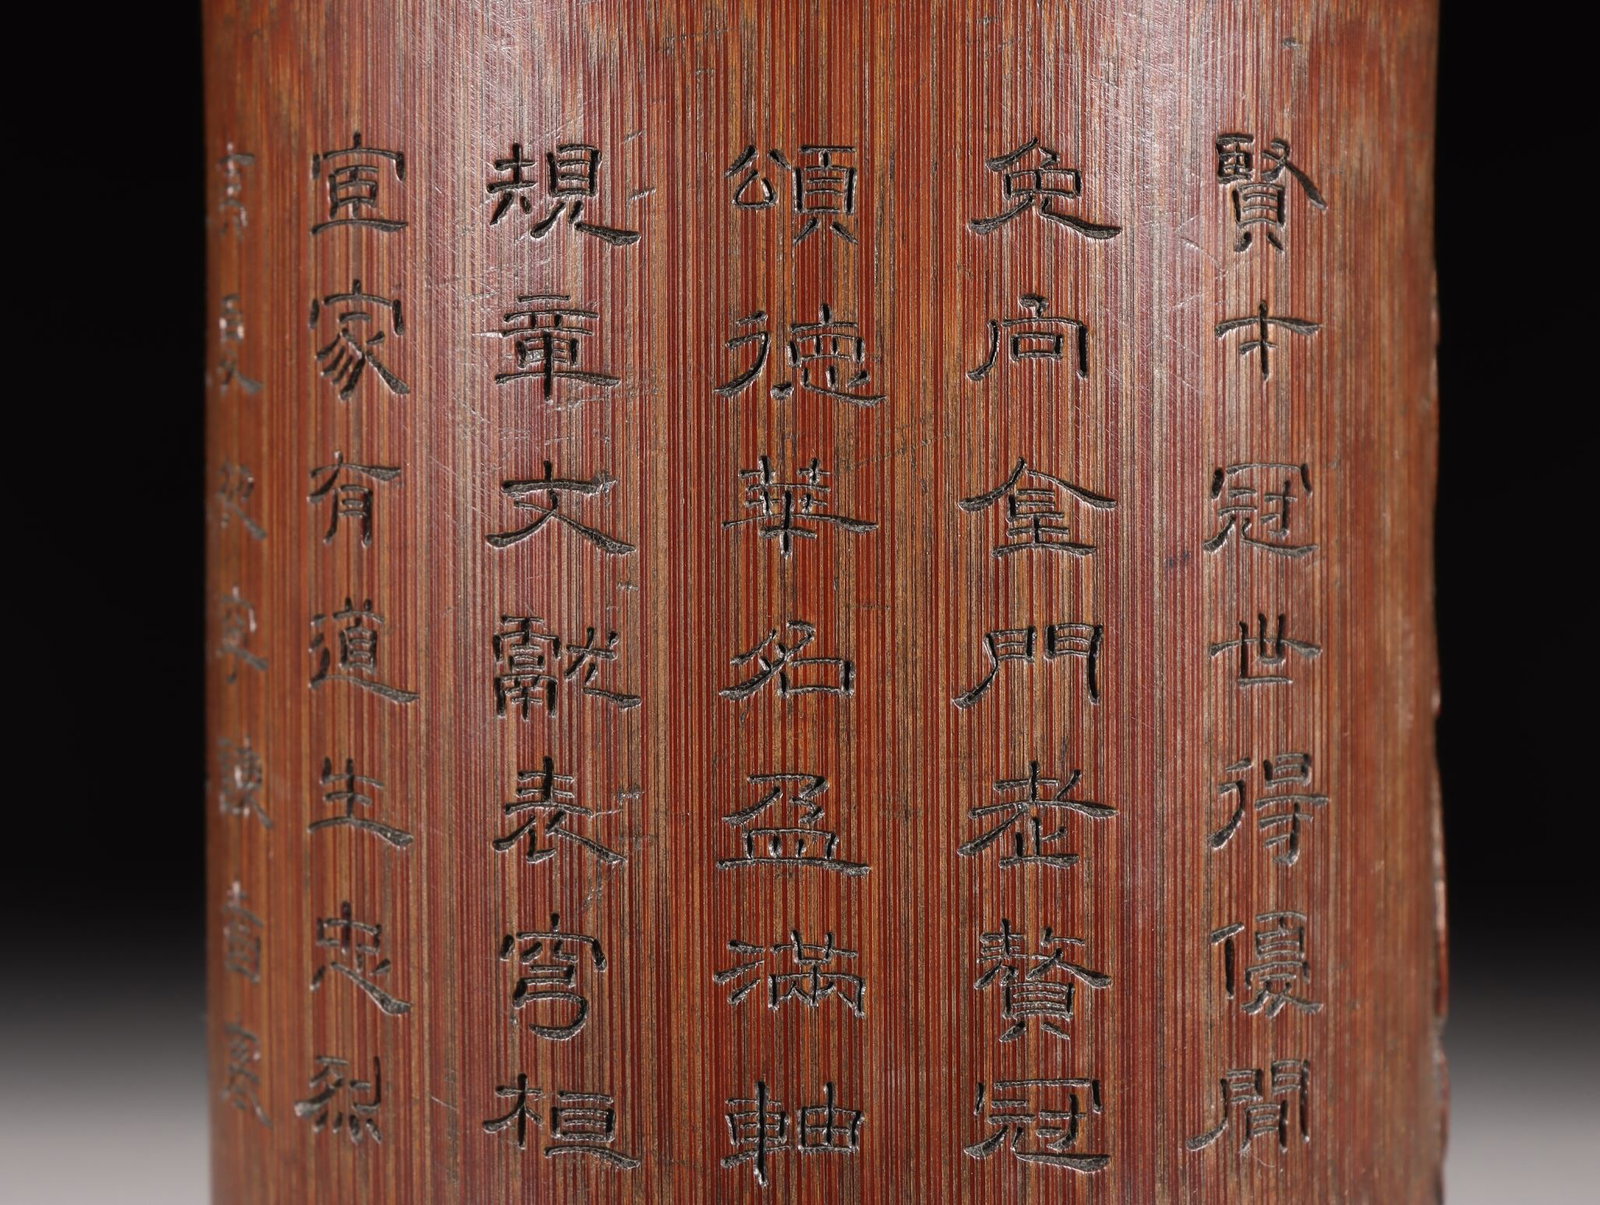 賢才冠世得優閒
免向金門老贅冠
頌德華名盈滿軸
規章文獻表穹桓
宜家有道生忠烈